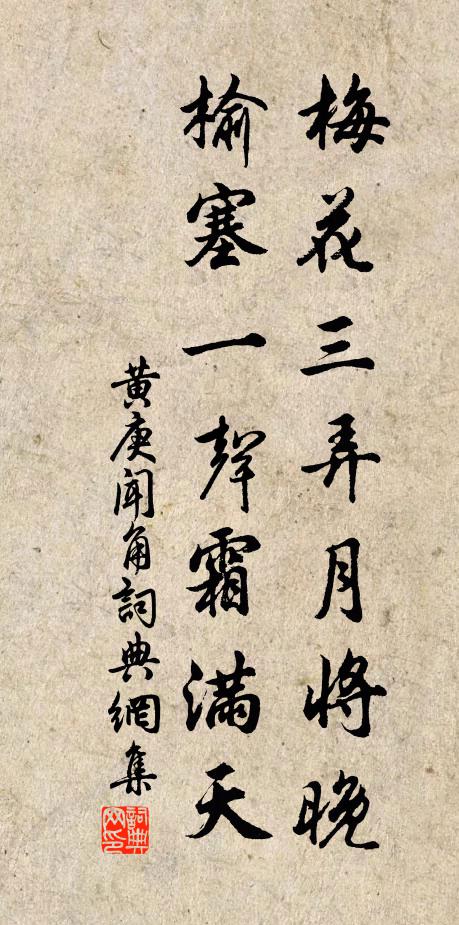 梅花三弄月將晚
榆塞一聲霜滿天
黃庚聞角詞典網集
詞典网印